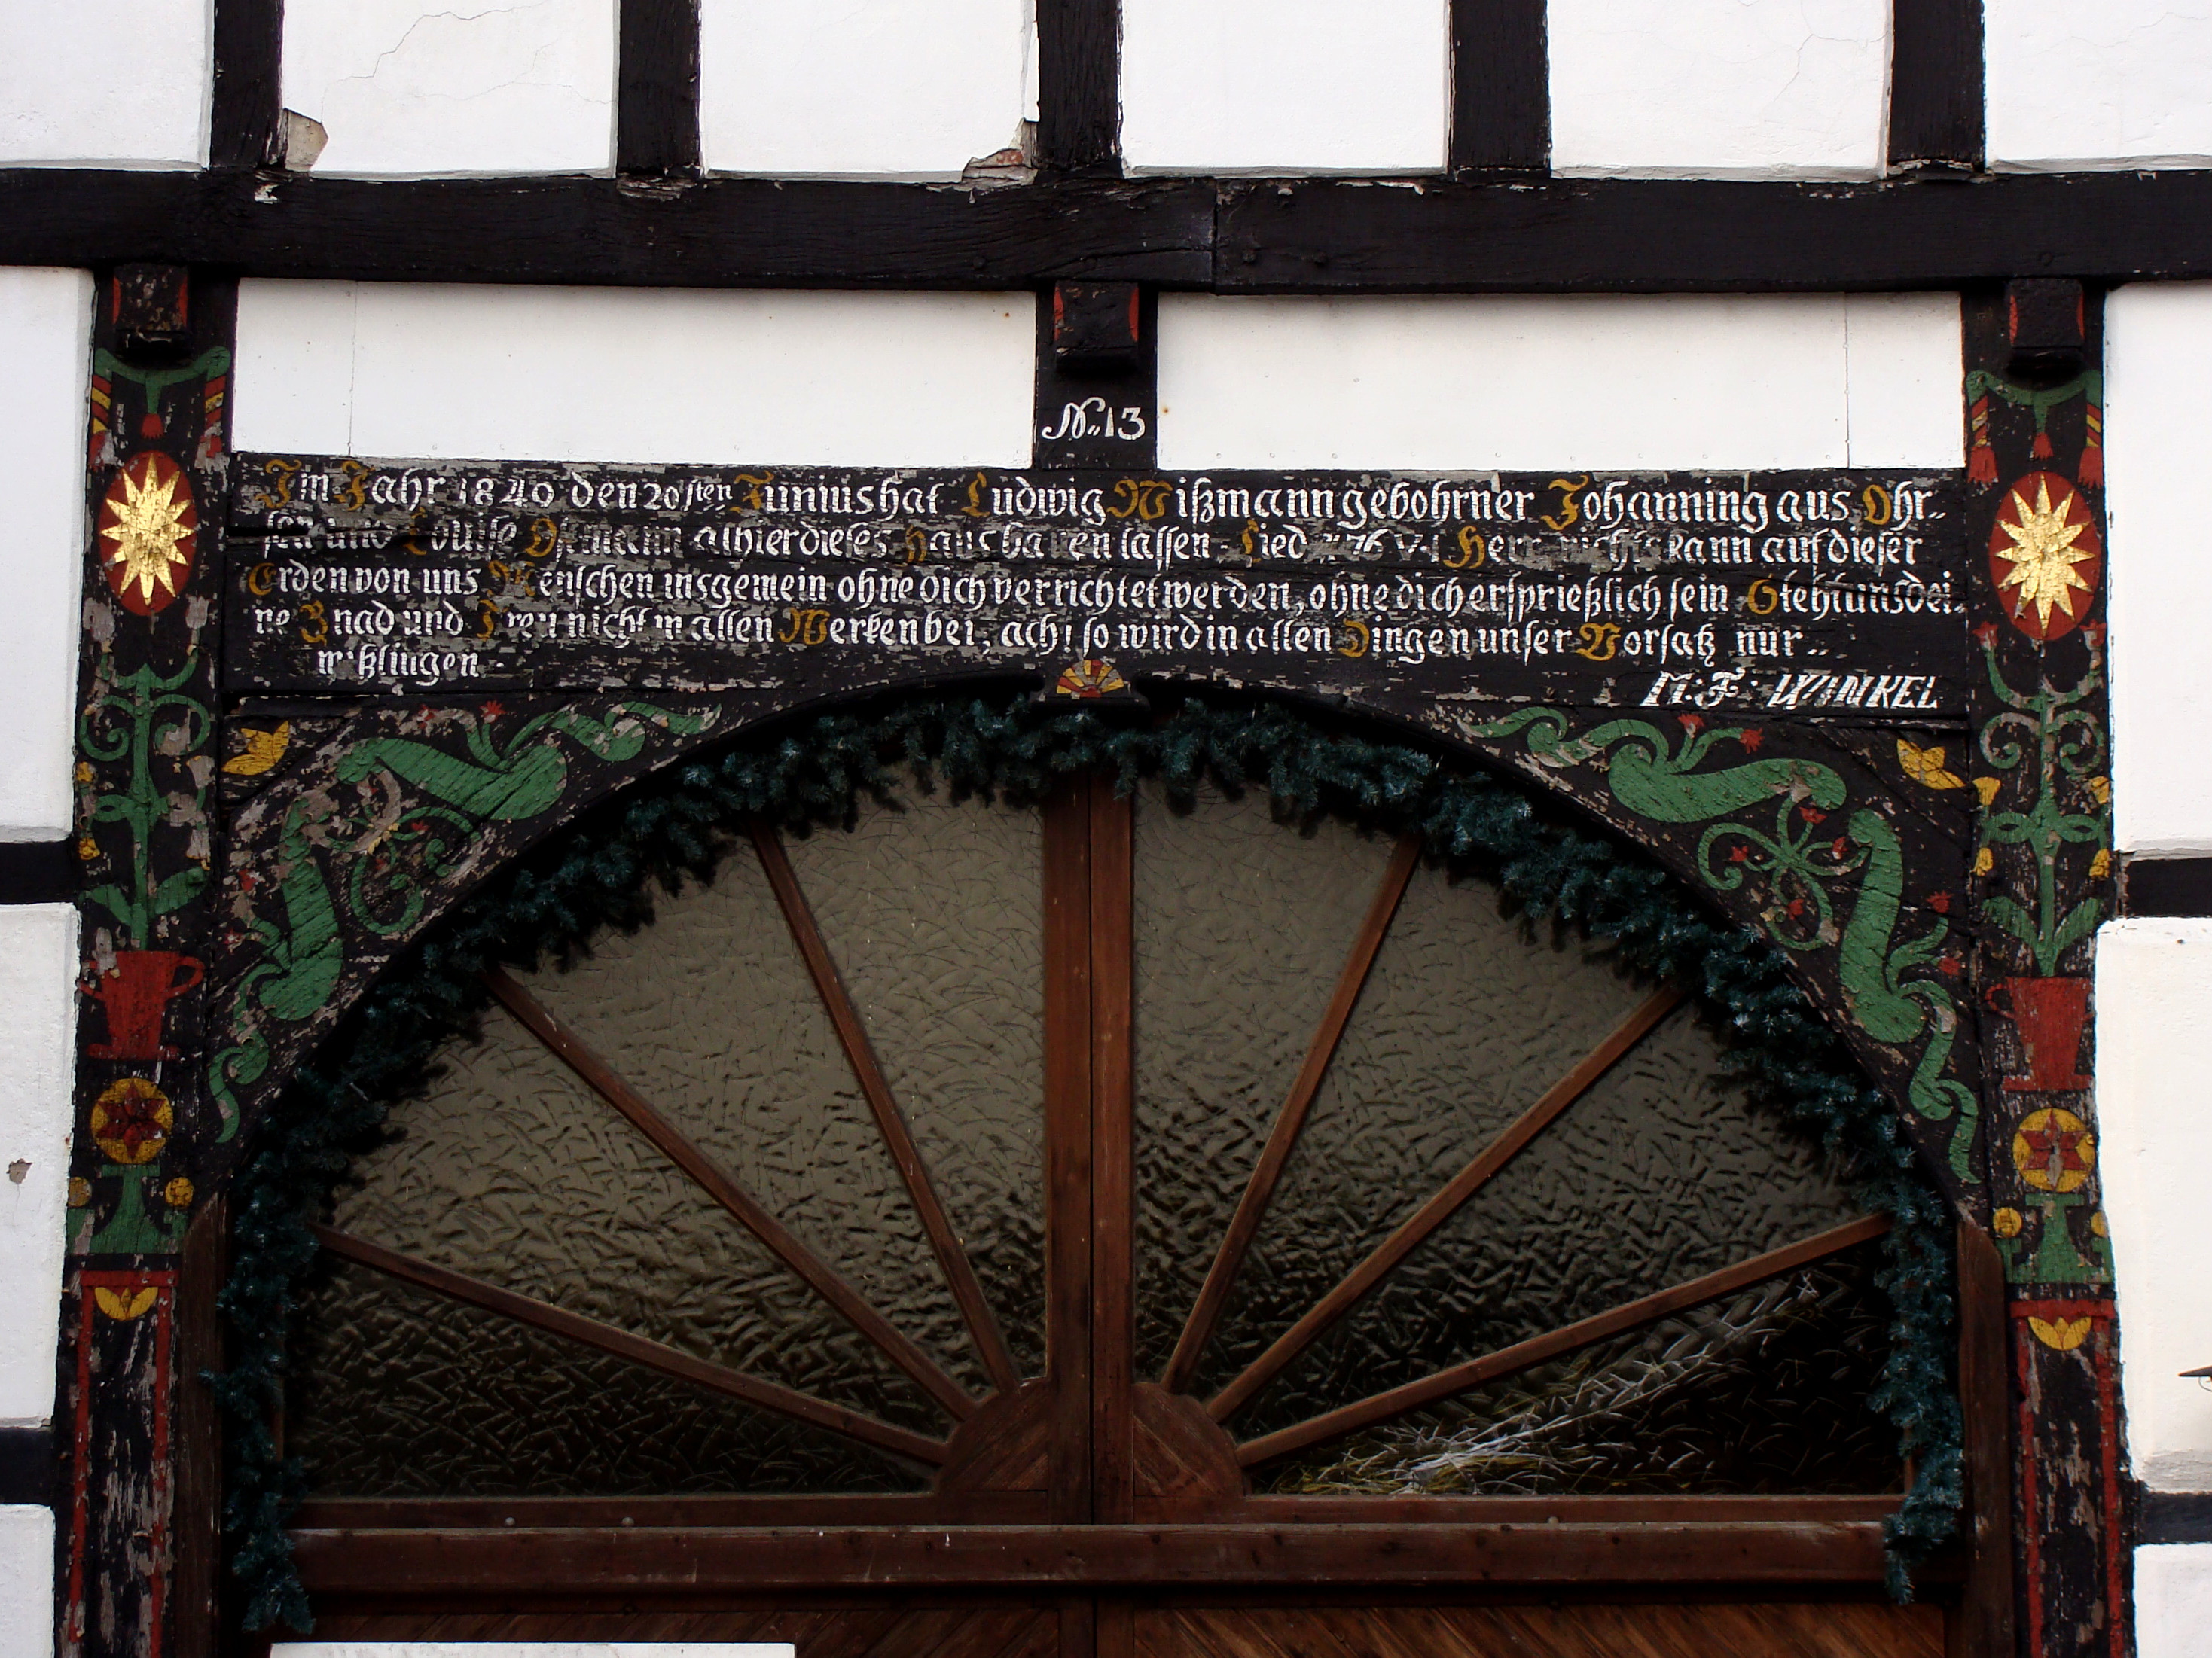 N. 13
Im Jahr 1840 den 20sten Junius hat Ludwig Wißmann gebohrner Johanning aus Ohr..
sen und Louise alhier dieses Haus bauen lassen. Lied Herr nichts kann auf dieser
Erden von uns Menschen insgemein ohne dich verrichtet werden, ohne dich ersprießlich sein Steht uns dei.
ne Gnad und Treu nicht in allen Werken bei, ach! so wird in allen Dingen unser Vorsatz nur ..
mißlingen.
M: F: WINKEL